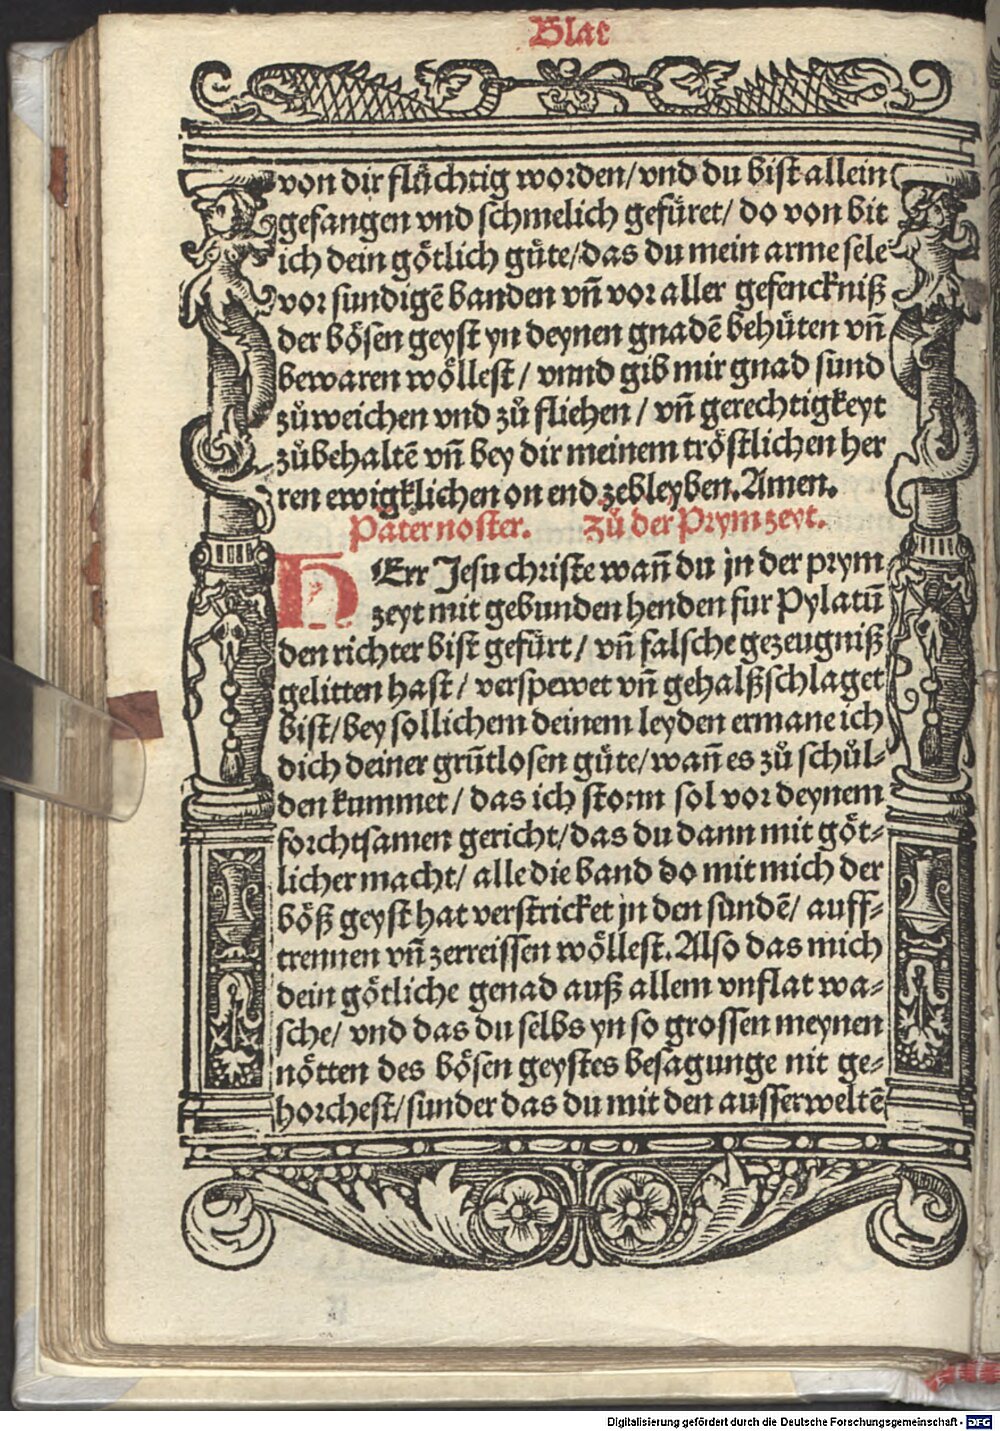 Blat
von dir flüchtig worden/ vnd du bist allein
gefangen vnd schmelich gefüret/ do von bit
ich dein götlich güte/ das du mein arme sele
vor sundigē banden vn̄ vor aller gefenckniß
der bösen geyst yn deynen gnadē behüten vn̄
bewaren wöllest/ vnnd gib mir gnad sund
zů weichen vnd zů fliehen/ vn̄ gerechtigkeyt
zů behaltē vn̄ bey dir meinem tröstlichen her
ren ewigklichen on end zebleyben. Amen.
Pater noster. Zů der Prym zeyt.
HErr Jesu christe wan̄ du jn der prym
zeyt mit gebunden henden fur Pylatū
den richter bist gefürt/ vn̄ falsche gezeugniß
gelitten hast/ verspewet vn̄ gehalßschlaget
bist/ bey sollichem deinem leyden ermane ich
dich deiner grūtlosen güte/ wan̄ es zů schůl-
den kummet/ das ich stonn sol vor deynem
forchtsamen gericht/ das du dann mit göt-
licher macht/ alle die band do mit mich der
böß geyst hat verstricket jn den sundē/ auff-
trennen vn̄ zerreissen wöllest. Also das mich
dein götliche genad auß allem vnflat wa-
sche/ vnd das du selbs yn so grossen meynen
nötten des bösen geystes besagunge nit ge-
horchest/ sunder das du mit den ausserweltē
Digitalisierung gefördert durch die Deutsche Forschungsgemeinschaft - DFG